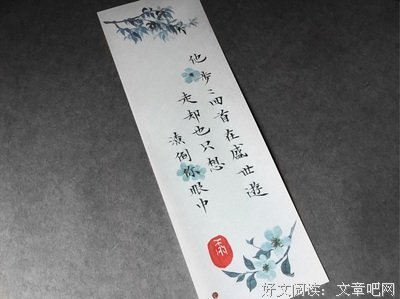 他步々回首在盛世遊
走却也只想
潦倒你眼中
好文阅读：文章吧网